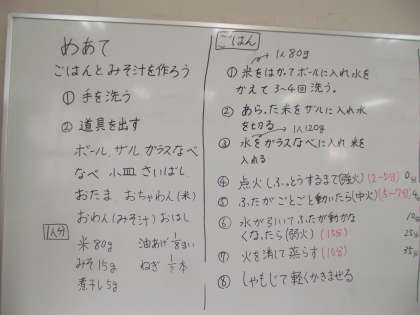 めあて
ごはんとみそ汁を作ろう
① 手を洗う
② 道具を出す
ボール、ザル、ガラスなべ
なべ 小皿 さいばし
おたま おちゃわん(米)
おわん(みそ汁) おはし
1人分
米 80g 油あげ 1/8まい
みそ 15g ねぎ 1/5本
煮干し 5g
ごはん
1人80g
① 米をはかってボールに入れ水を
かえて 3~4回 洗う。
② あらった米をザルに入れ水
を切る
1人120g
③ 水をガラスなべに入れ 米を
入れる
④ 点火しふっとうするまで(強火) (2~5分) 0分
⑤ ふたがごとごと動いたら(中火) (5~7分)
⑥ 水が引いてふたが動かな
くなったら(弱火) (15分)
⑦ 火を消して蒸らす (10分)
⑧ しゃもじで軽くかきまぜる